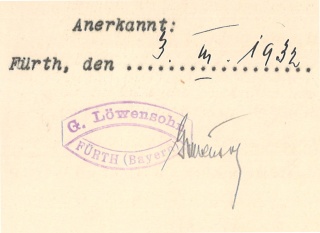 Anerkannt:
Fürth, den 3. III. 1932
G. Löwensohn
FÜRTH (Bayern)